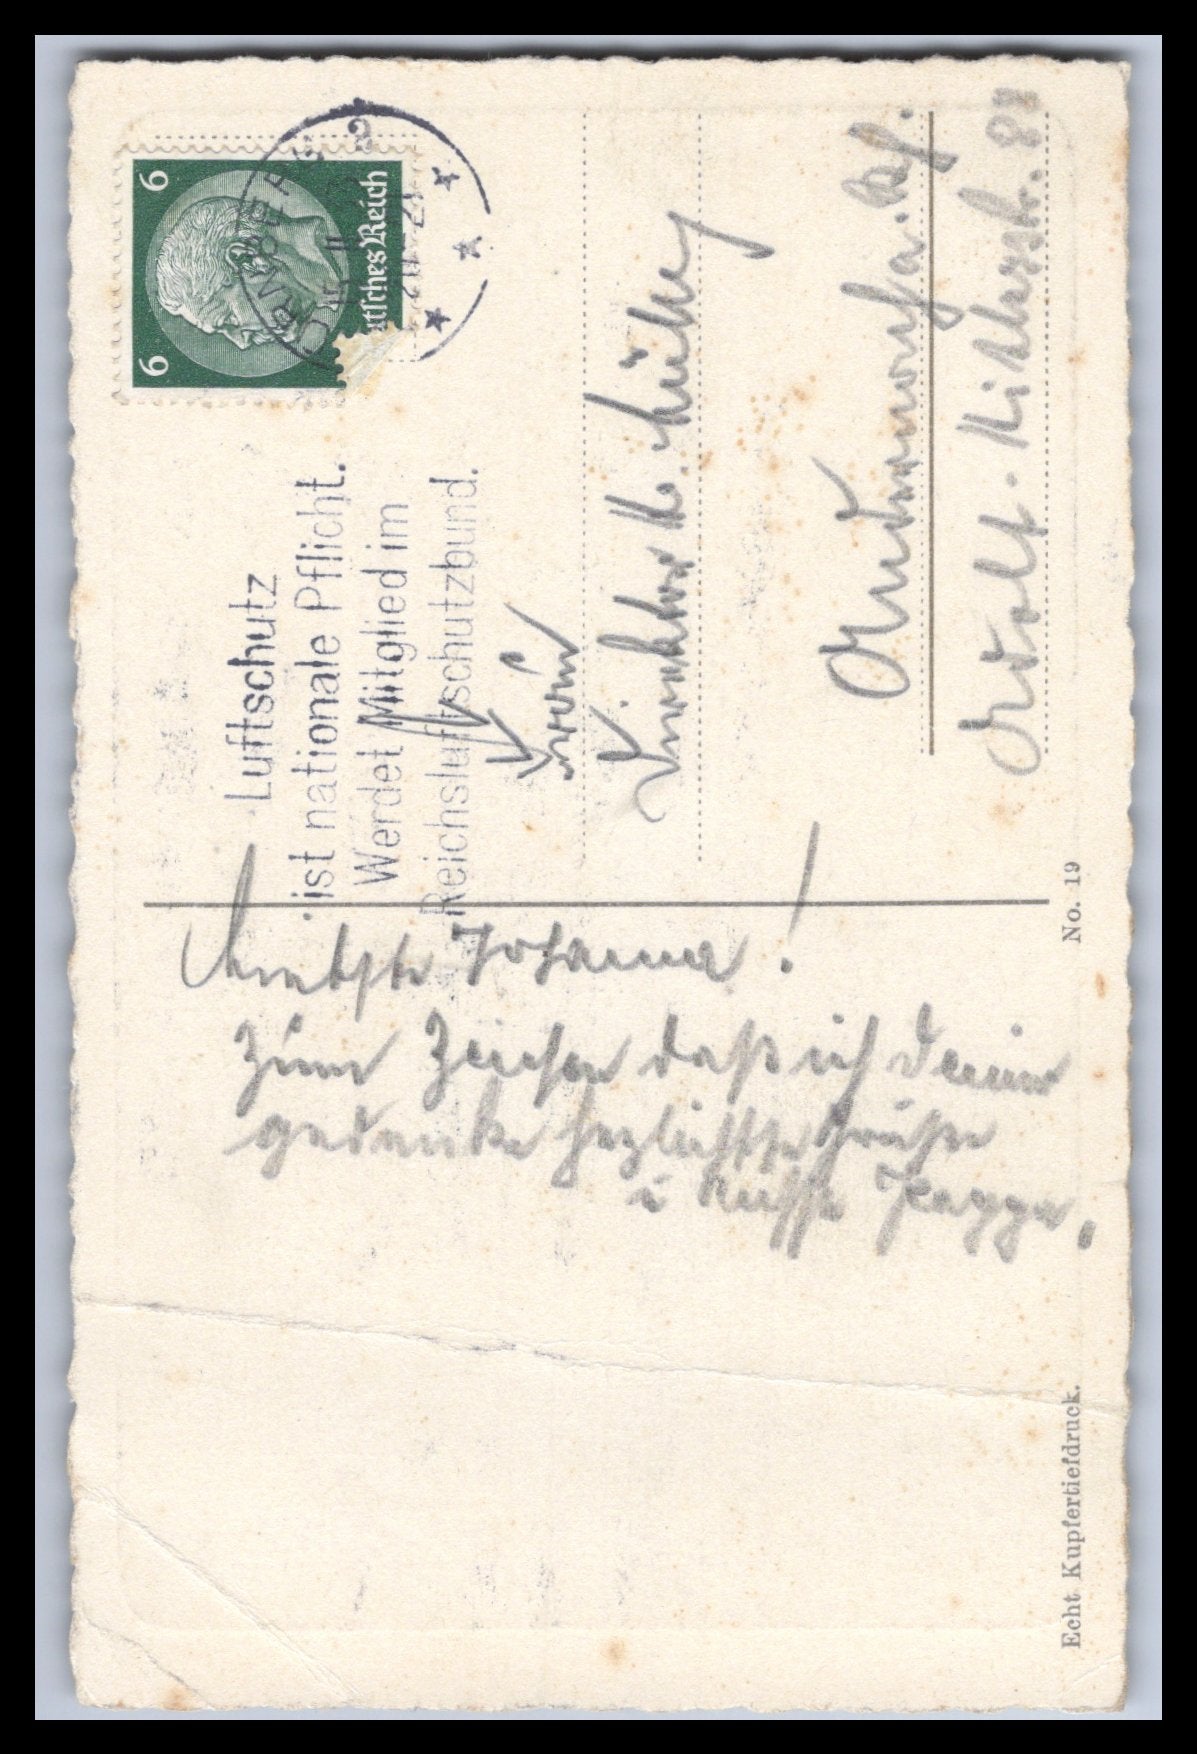 6 6
Deutsches Reich
NÜRNBERG 2
Luftschutz
ist nationale Pflicht.
Werdet Mitglied im
Reichsluftschutzbund.
Frau
Direktor
a. Rh.
Adolf-Hitlerstr. 88
Johanna!
Zum Zeichen daß ich Deiner
gedenke herzlichste Grüße
u Küsse Pappa.
No. 19
Echt Kupfertiefdruck.